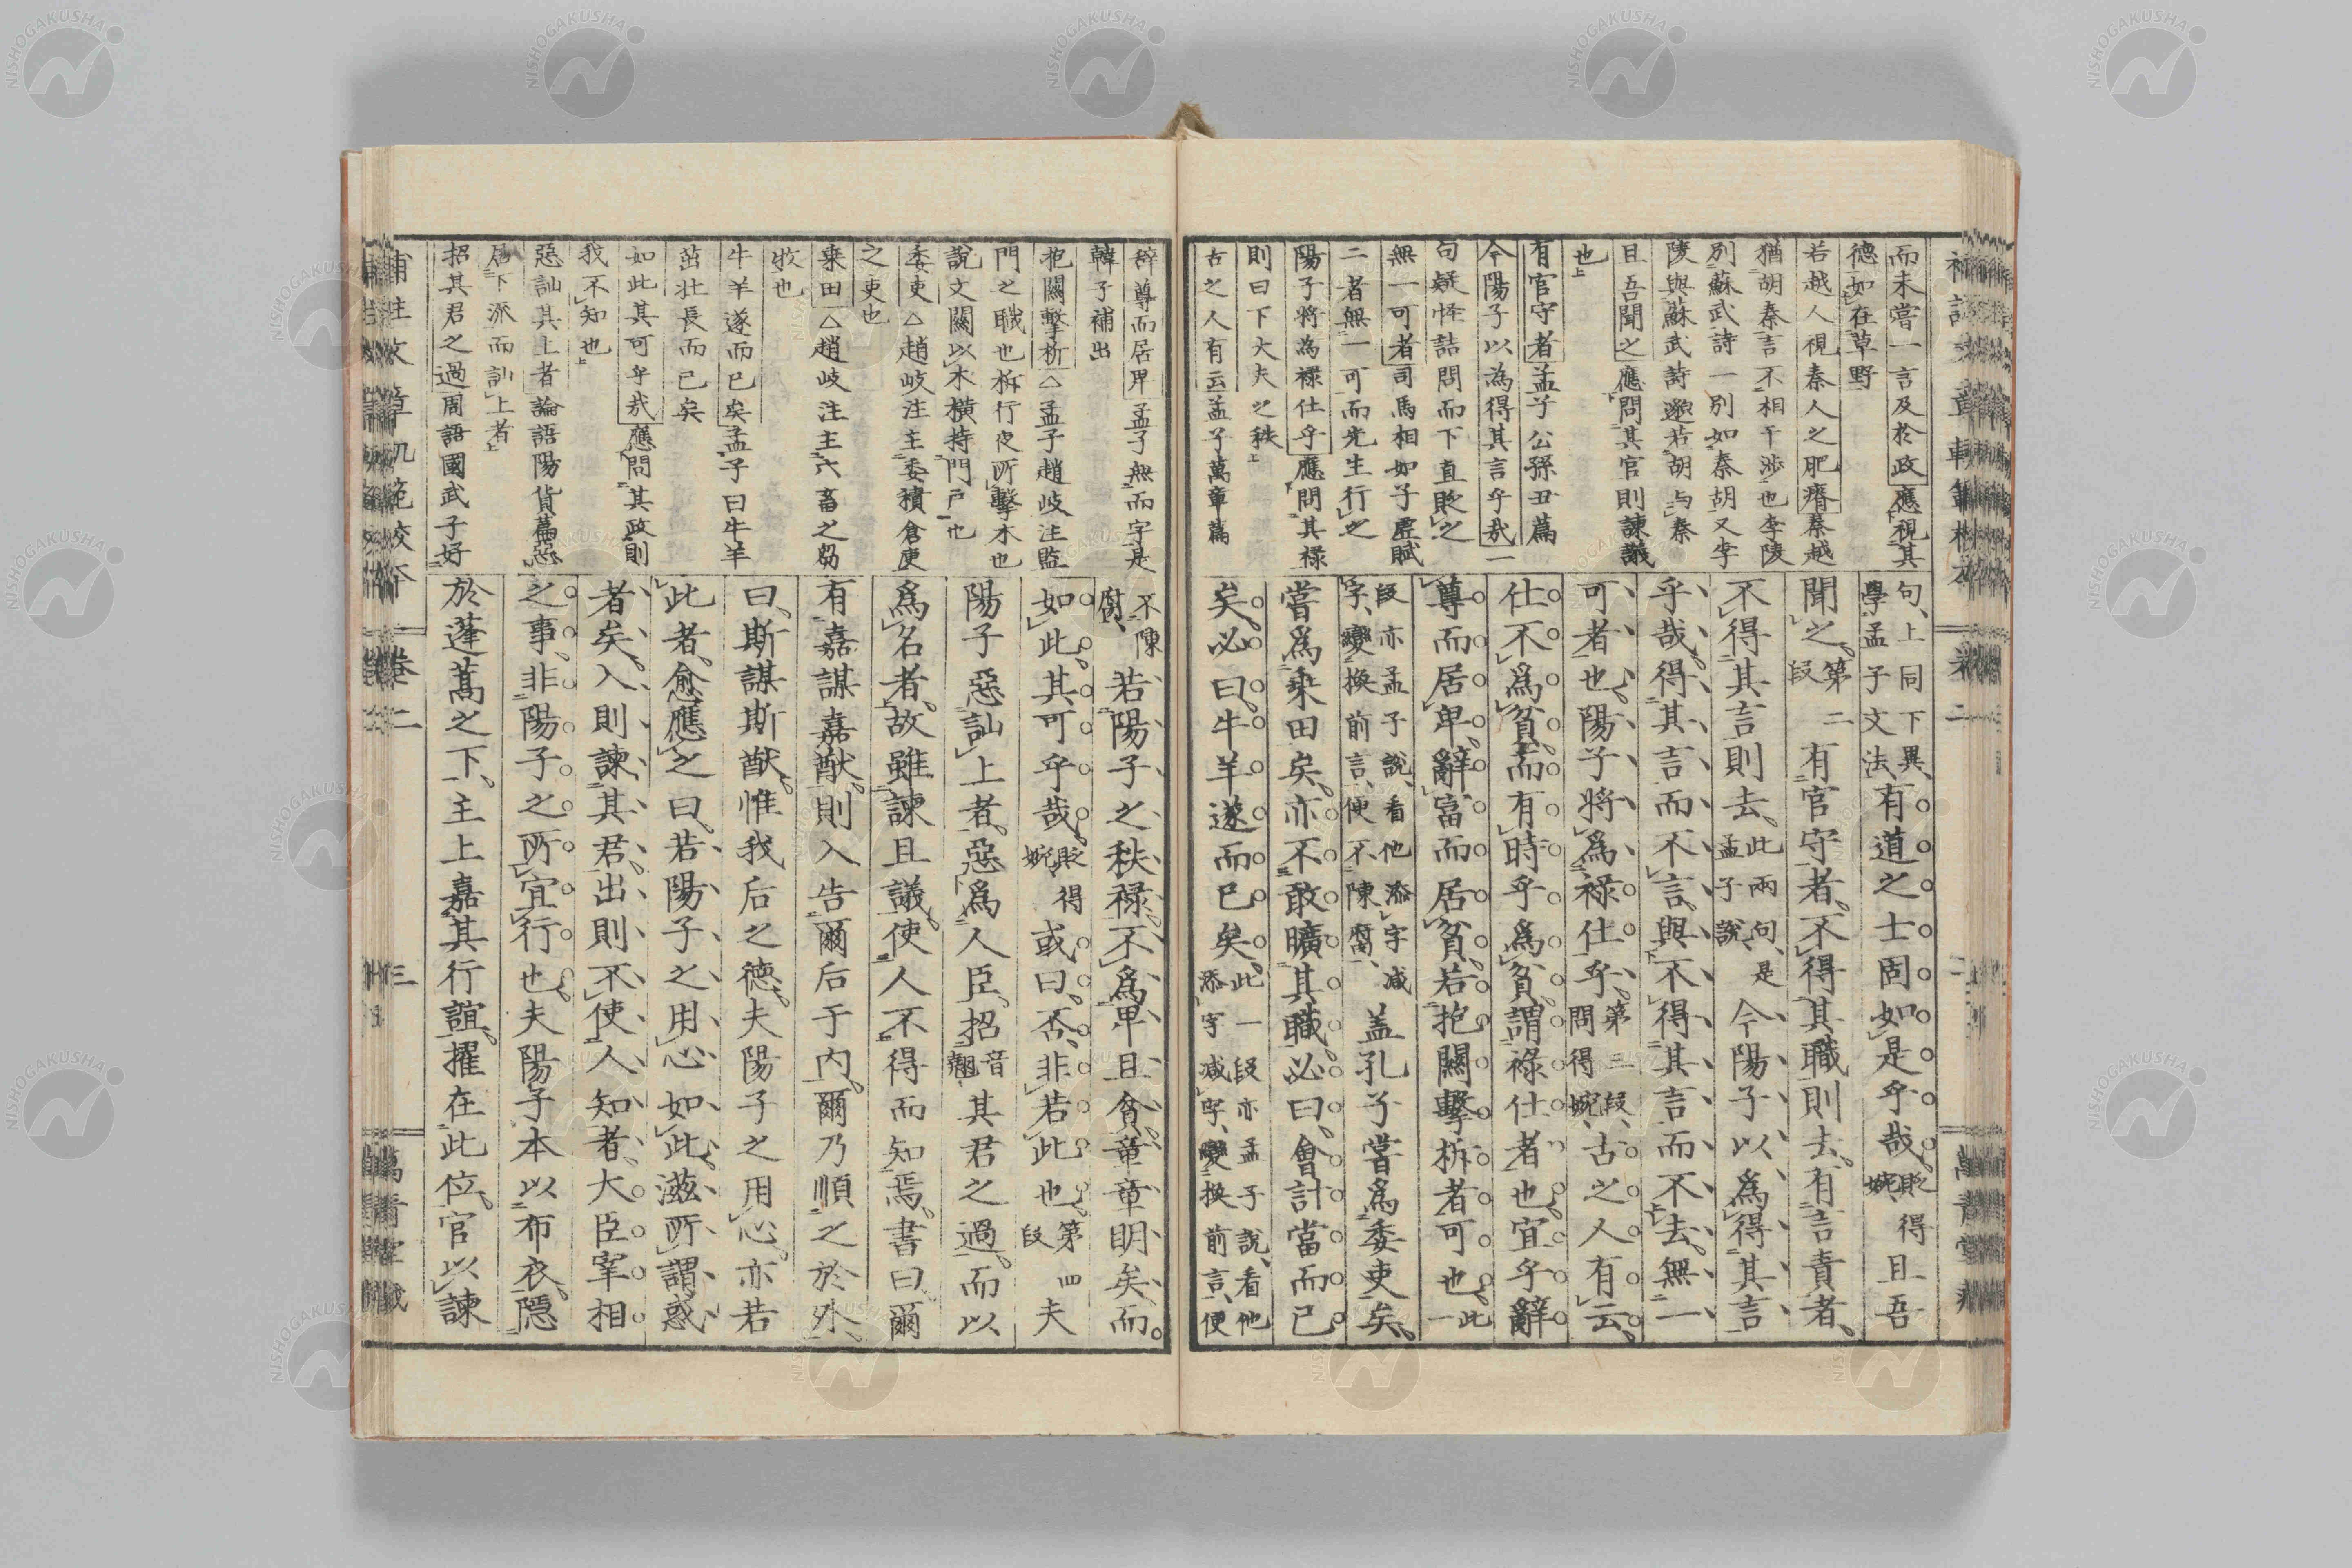 而未嘗一言及於政應視其
德如在草野
若越人視秦人之肥瘠秦越
猶胡秦言不相干渉也李陵
別蘇武詩一別如秦胡又李
陵與蘇武詩邈若胡与秦
且吾聞之應問其官則諫議
也
有官守者孟子公孫丑篇
今陽子以為得其言乎哉一
句疑怪詰問而下直貶之
無一可者司馬相如子虛賦
二者無一可而先生行之
陽子將為祿仕乎應問其祿
則曰下大夫之秩
古之人有云孟子萬章篇
句、上同下異、
學孟子文法、有道之士固如是乎哉。貶得婉、且吾
聞之。第二段有官守者、不得其職則去。有言責者、
不得其言則去、此兩句、是孟子說、今陽子以為得其言
乎哉、得其言而不言、與不得其言而不去、無一
可者也、陽子將為祿仕乎、第三段、問得婉、古之人有云、
仕不為貧、而有時乎為貧、謂祿仕者也、宜乎辭
尊而居卑、辭富而居貧、若抱關擊柝者可也、此一
段亦孟子說、看他添字減字、變換前言、便不陳腐、盖孔子嘗為委吏矣、
嘗為乘田矣、亦不敢曠其職、必曰、會計當而已
矣、必曰牛羊遂而已矣。此一段亦孟子說、看他添字減字、變換前言、便
辭尊而居卑孟子無而字是
韓子補出
抱關擊柝△孟子趙岐注監
門之職也柝行夜所擊木也
說文關以木橫持門戶也
委吏△趙岐注主委積倉庾
之吏也
乘田△趙岐注主六畜之芻
牧也
牛羊遂而已矣孟子曰牛羊
茁壯長而已矣
如此其可乎哉應問其政則
我不知也
惡訕其上者論語陽貨篇惡
居下派而訕上者
招其君之過周語國武子好
不陳腐、若陽子之秩祿、不為卑且貧、章章明矣、而
如此、其可乎哉、貶得婉、或曰、否、非若此也。第四段夫
陽子惡訕上者、惡為人臣、招音翹其君之過、而以
為名者、故雖諫且議、使人不得而知焉。書曰、爾
有嘉謀嘉猷、則入告爾后于內。爾乃順之於外、
曰、斯謀斯猷、惟我后之德、夫陽子之用心、亦若
此者、愈應之曰、若陽子之用心如此、滋所謂惑
者矣、入則諫其君、出則不使人知者、大臣宰相
之事、非陽子之所宜行也、夫陽子本以布衣、隱
於蓬蒿之下、主上嘉其行誼、擢在此位、官以諫
卷二 三